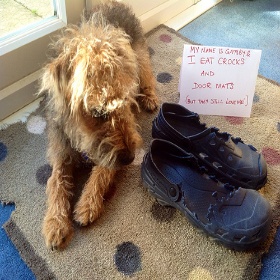 MY NAME IS GATSBY &
I EAT CROCS
AND
DOOR MATS
(BUT THEY STILL LOVE ME)